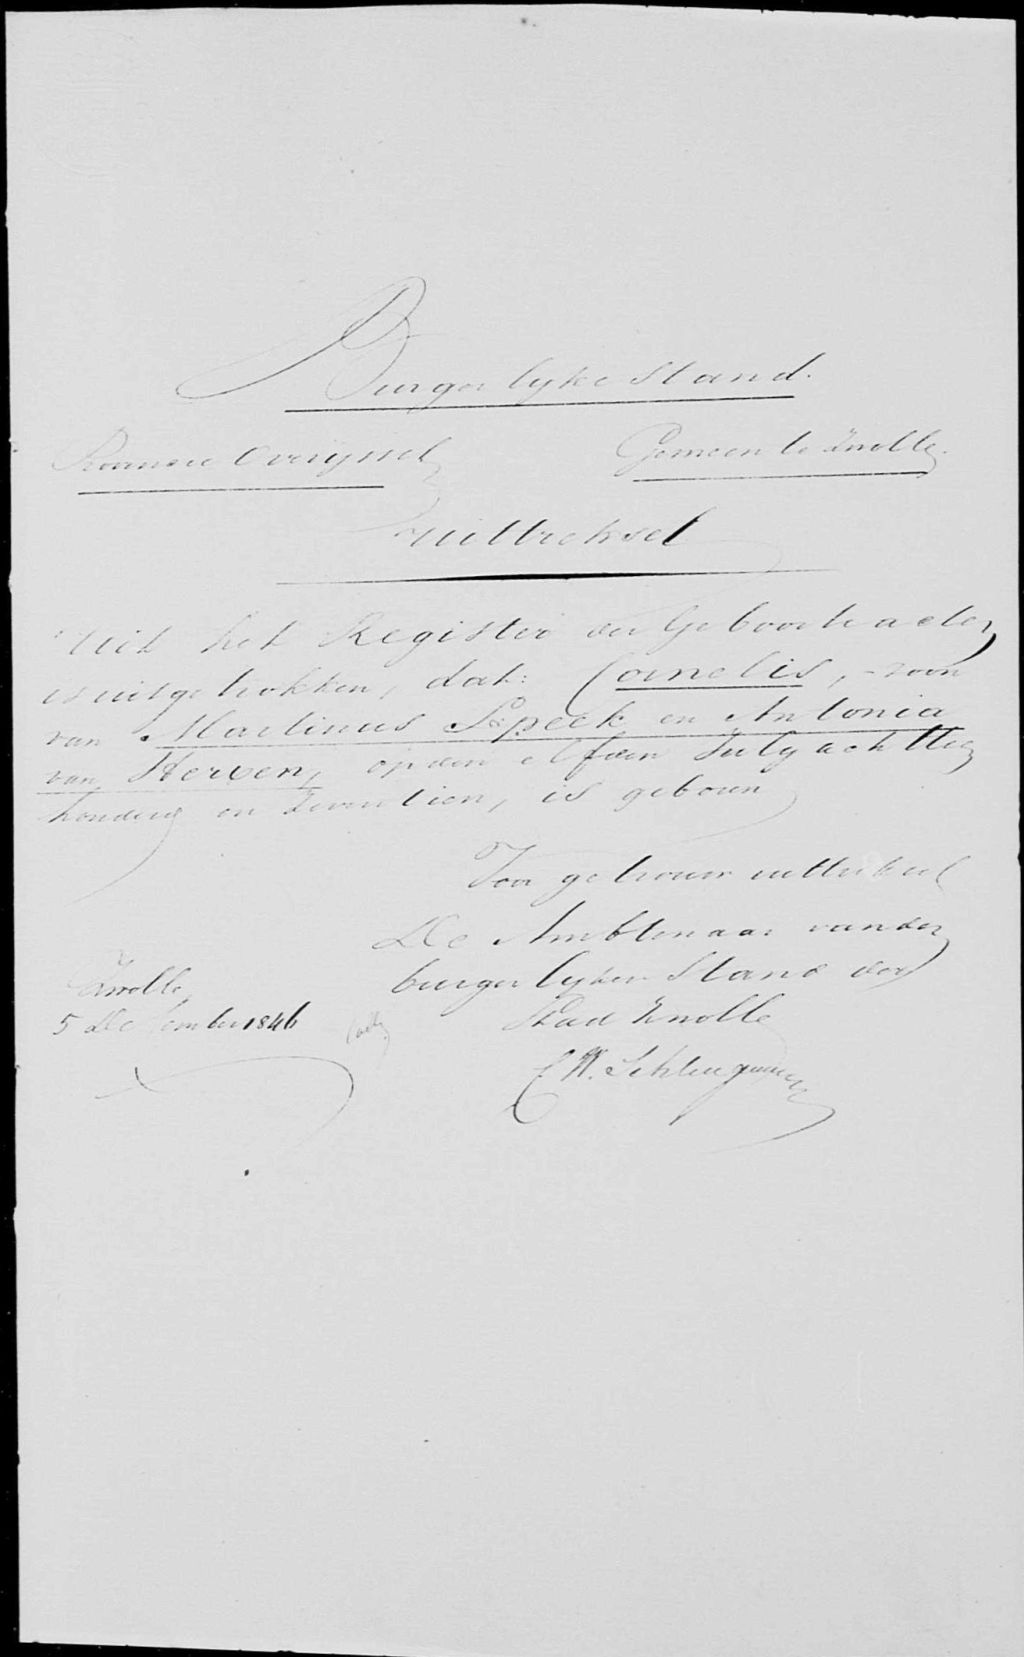 Burgerlyke Stand.
Provincie Overijssel
Gemeente Zwolle.
Uittreksel
Uit het Register der Geboorteacten
is uitgetrokken, dat: Cornelis, zoon
van Martinus Speek en Antonia
van Herven, op den elfden July achttien
honderd en zeventien, is geboren
Voor getrouw uittreksel
De Ambtenaar van den
burgerlyken Stand der
Stad Zwolle
Zwolle,
5 December 1846
C W.